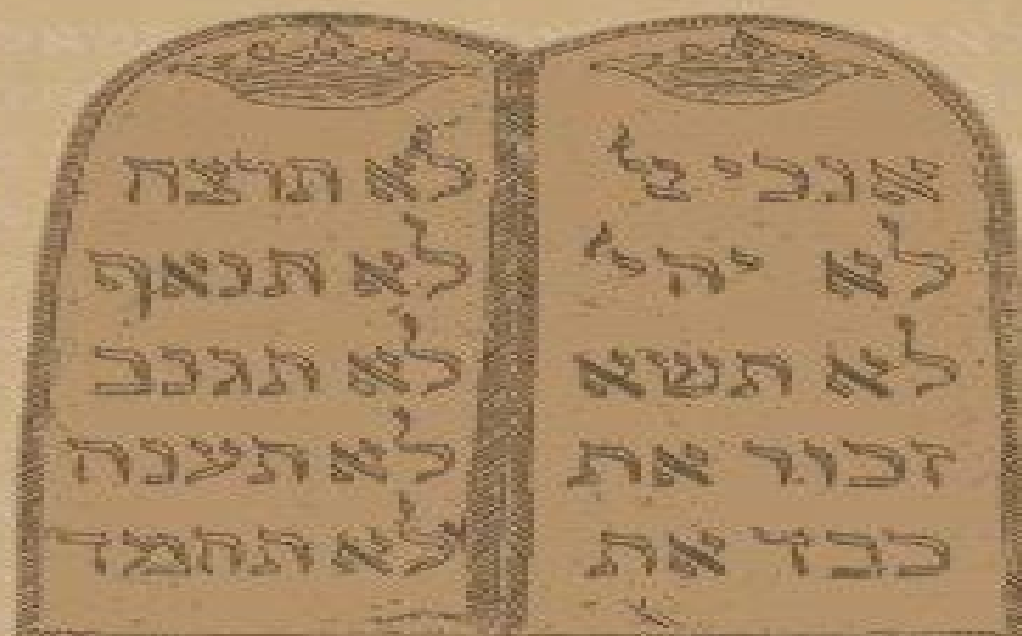 אנכי
לא יהי'
לא תשא
זכור את
כבד את
לא תרצח
לא תנאף
לא תגנב
לא תענה
לא תחמד